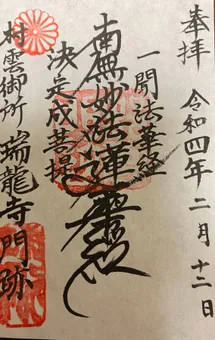 奉拝
令和四年二月十二日
一聞法華経
南無妙法蓮華経
決定成菩提
村雲御所
瑞龍寺門跡